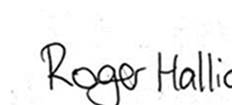 Roger Hallic